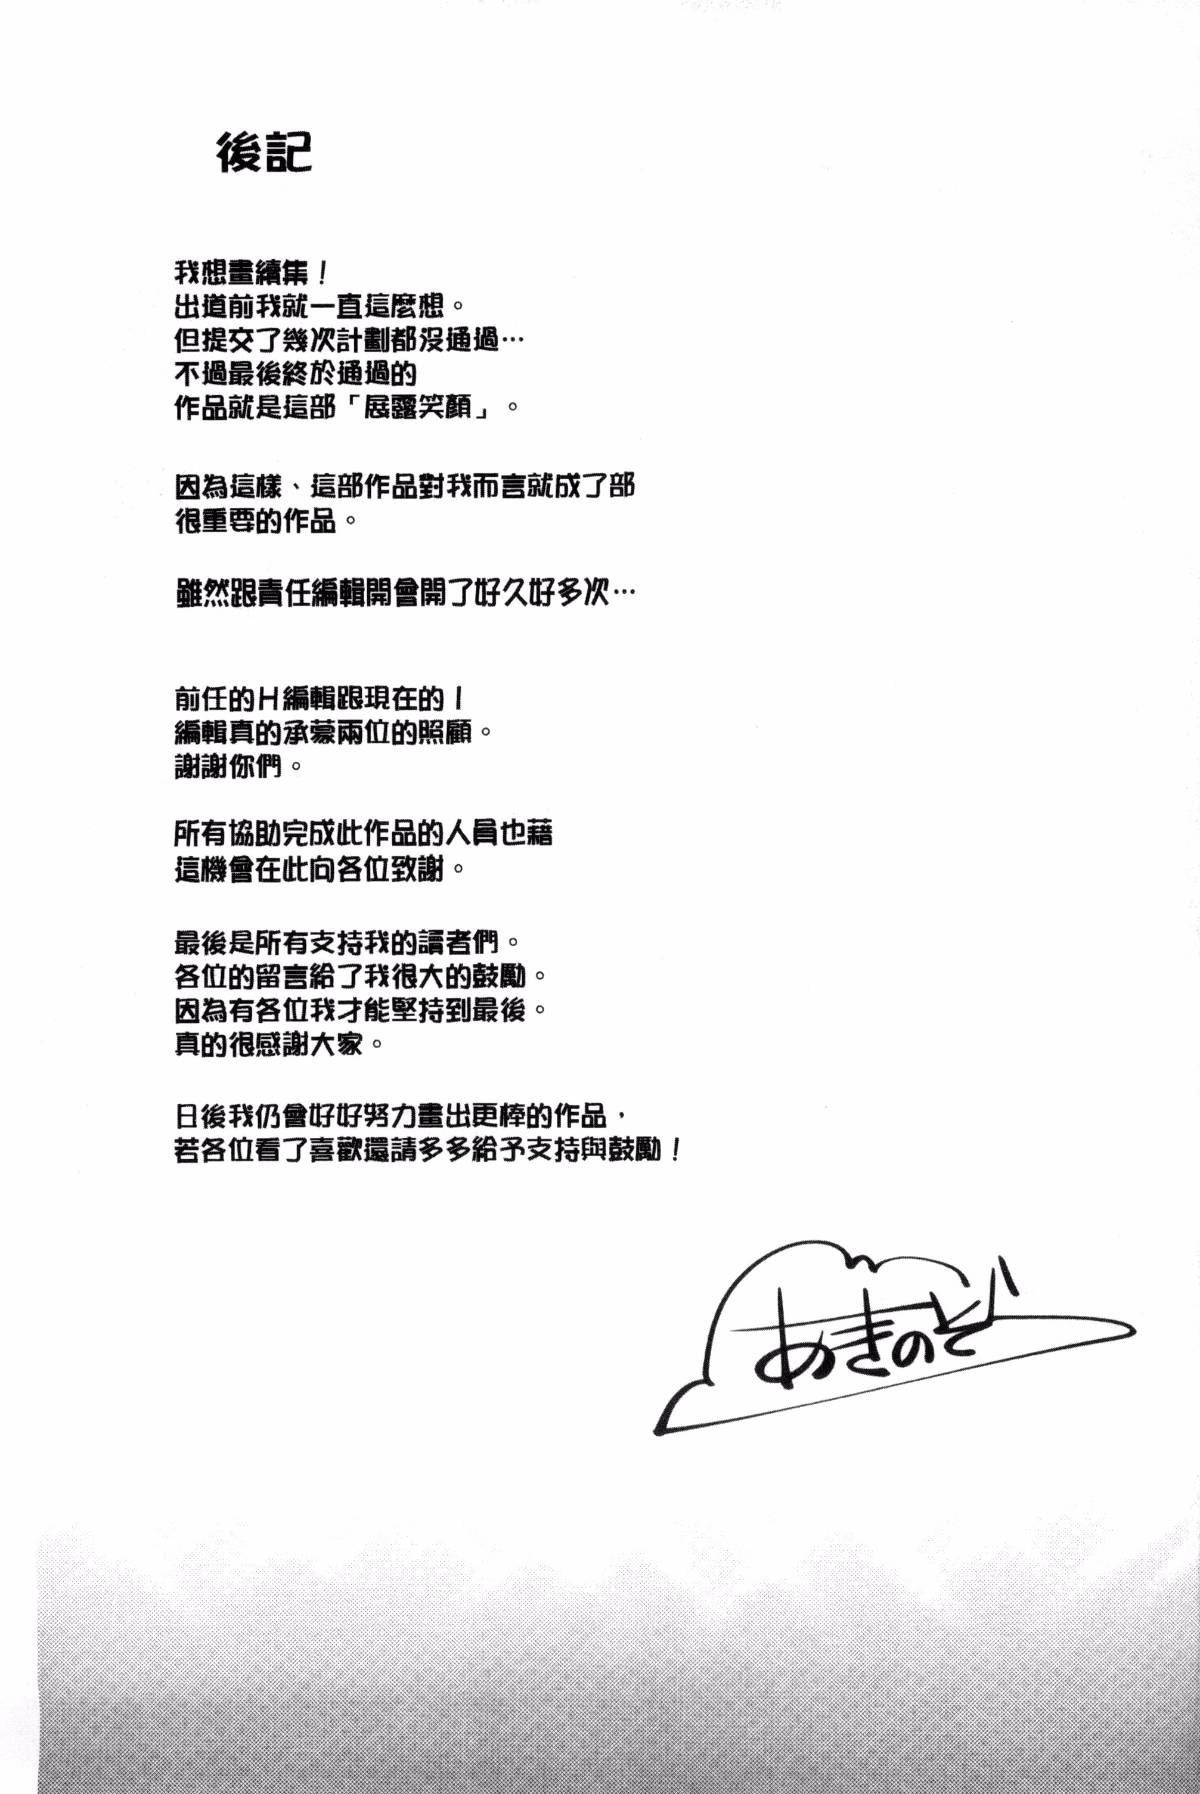 後記
我想畫續集！
出道前我就一直這麼想。
但提交了幾次計劃都沒通過…
不過最後終於通過的
作品就是這部「展露笑顏」。
因為這樣、這部作品對我而言就成了部
很重要的作品。
雖然跟責任編輯開會開了好久好多次…
前任的H編輯跟現在的I
編輯真的承蒙兩位的照顧。
謝謝你們。
所有協助完成此作品的人員也藉
這機會在此向各位致謝。
最後是所有支持我的讀者們。
各位的留言給了我很大的鼓勵。
因為有各位我才能堅持到最後。
真的很感謝大家。
日後我仍會好好努力畫出更棒的作品，
若各位看了喜歡還請多多給予支持與鼓勵！
あきのそら